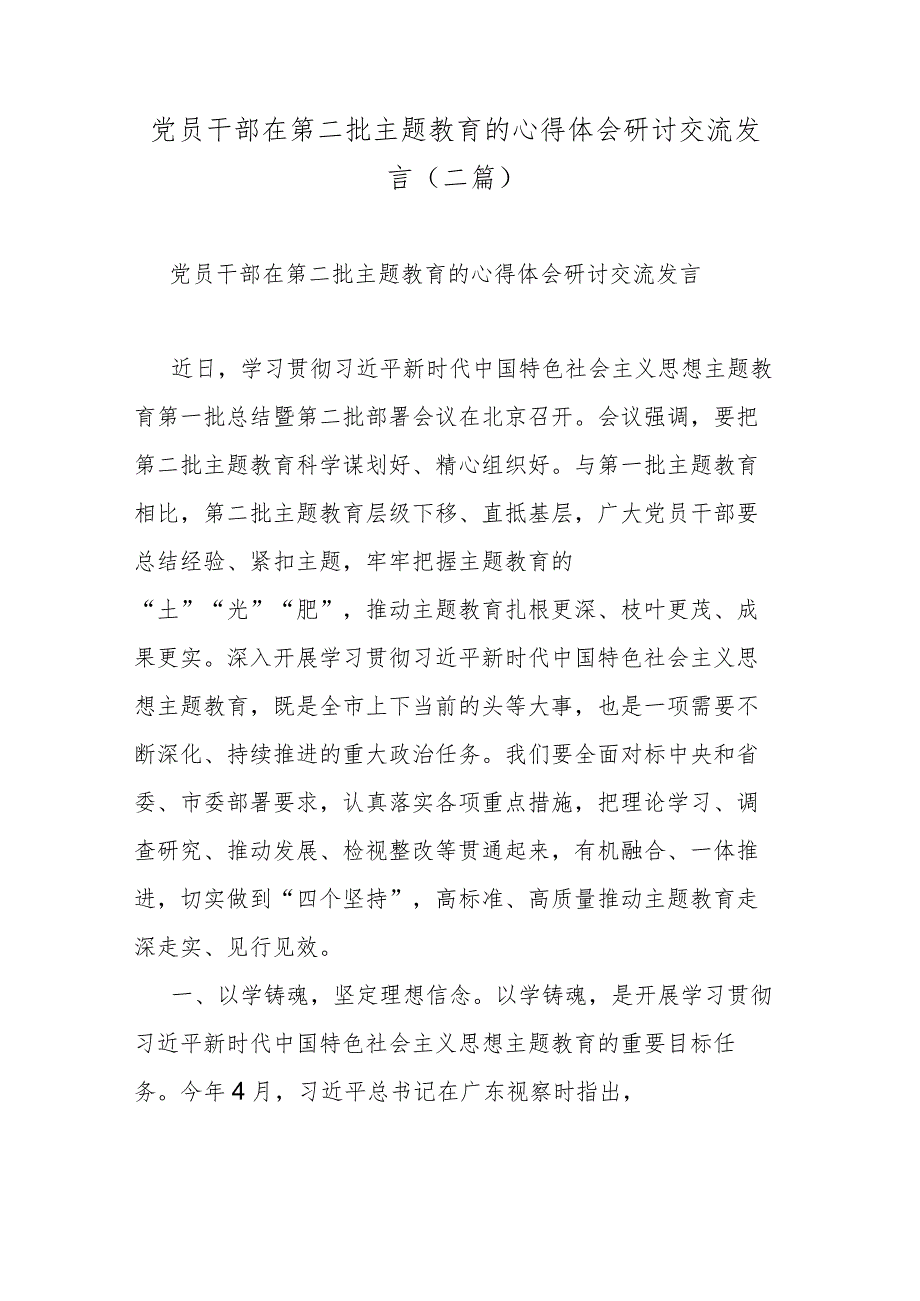 党员干部在第二批主题教育的心得体会研讨交流发
言（二篇）
党员干部在第二批主题教育的心得体会研讨交流发言
近日，学习贯彻习近平新时代中国特色社会主义思想主题教
育第一批总结暨第二批部署会议在北京召开。会议强调，要把
第二批主题教育科学谋划好、精心组织好。与第一批主题教育
相比，第二批主题教育层级下移、直抵基层，广大党员干部要
总结经验、紧扣主题，牢牢把握主题教育的
“土”“光”“肥”，推动主题教育扎根更深、枝叶更茂、成
果更实。深入开展学习贯彻习近平新时代中国特色社会主义思
想主题教育，既是全市上下当前的头等大事，也是一项需要不
断深化、持续推进的重大政治任务。我们要全面对标中央和省
委、市委部署要求，认真落实各项重点措施，把理论学习、调
查研究、推动发展、检视整改等贯通起来，有机融合、一体推
进，切实做到“四个坚持”，高标准、高质量推动主题教育走
深走实、见行见效。
一、以学铸魂，坚定理想信念。以学铸魂，是开展学习贯彻
习近平新时代中国特色社会主义思想主题教育的重要目标任
务。今年4月，习近平总书记在广东视察时指出，